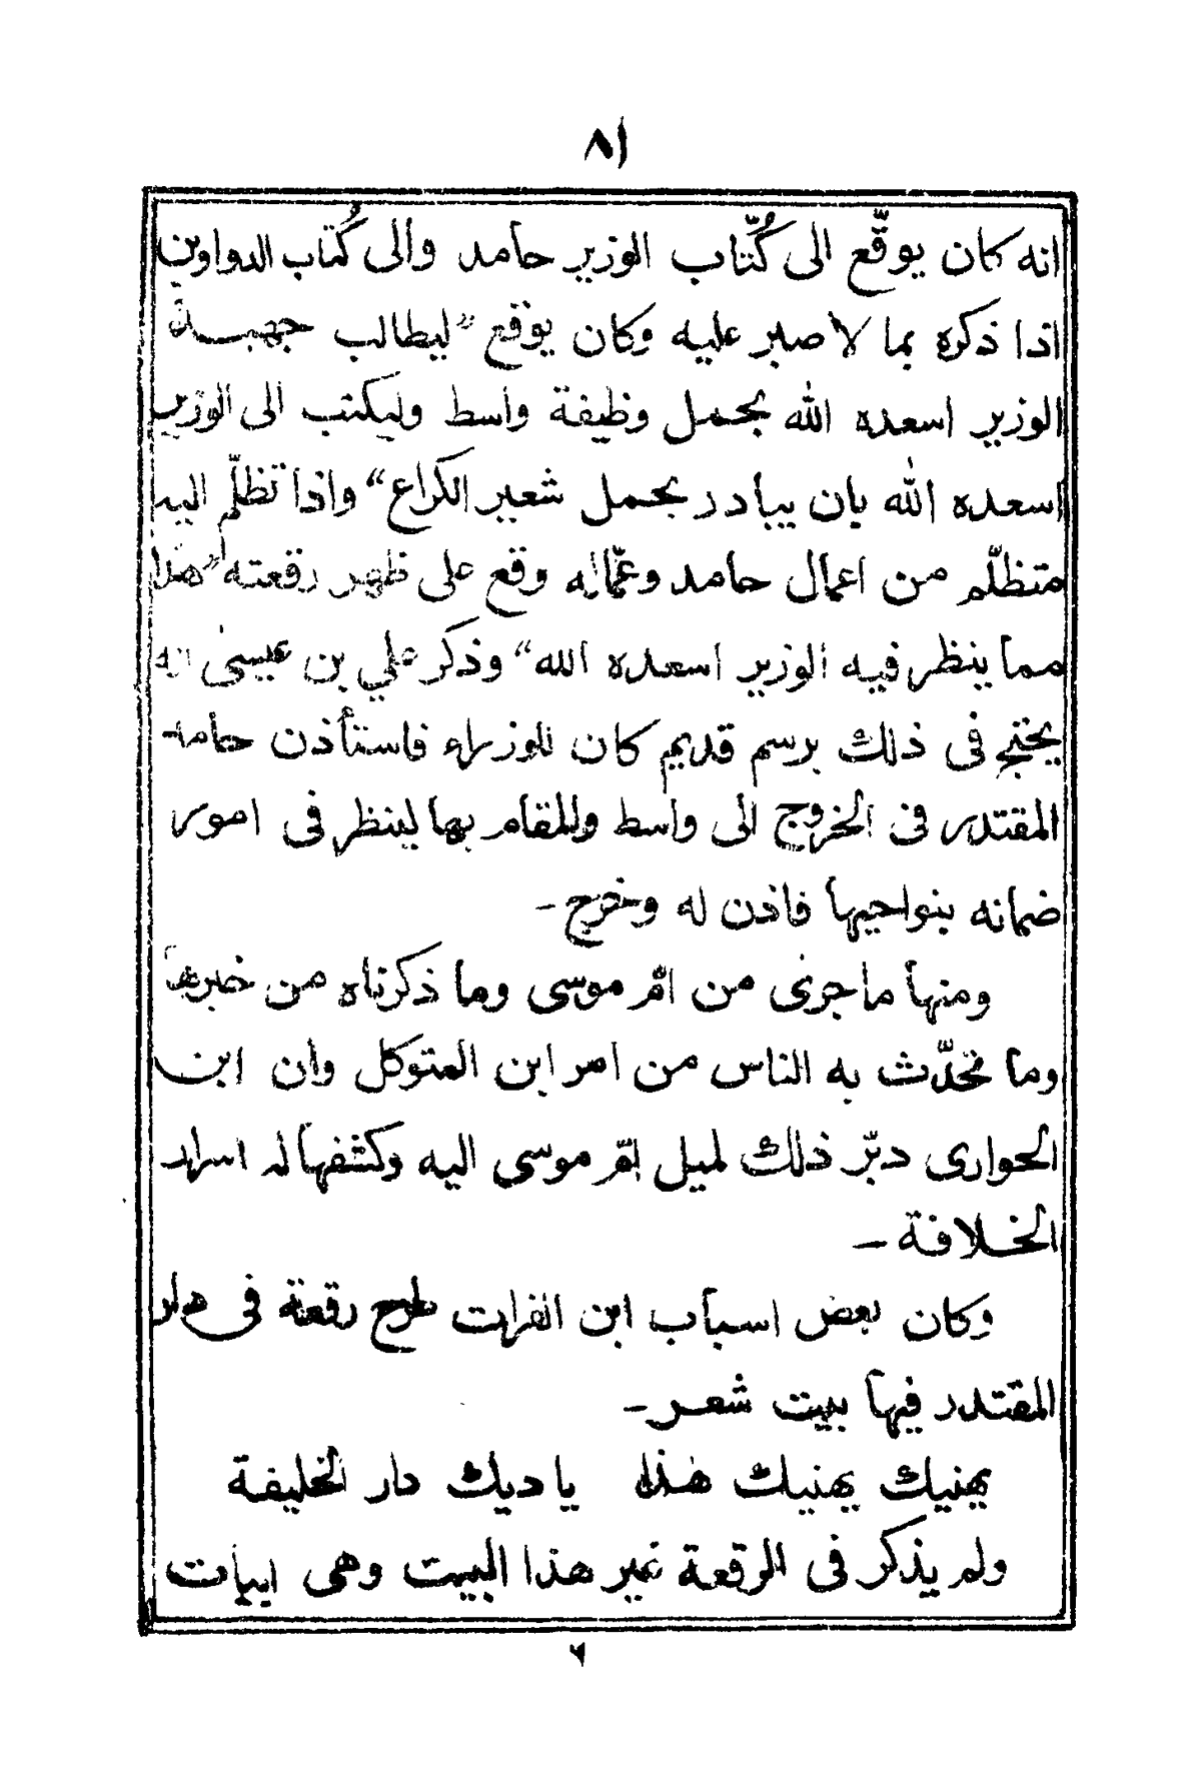 ٨١
انه كان يوقّع الى كُتّاب الوزير حامد والى كُتاب الدواوين
اذا ذكره بما لا صبر عليه وكان يوقع "ليطالب جهبذة
الوزير اسعده الله بحمل وظيفة واسط وليكتب الى الوزير
اسعده الله بان يبادر بحمل شعير الكراع" واذا تظلّم اليه
متظلّم من اعمال حامد وعمّاله وقع على ظهر رقعته "هذا
مما ينظر فيه الوزير اسعده الله" وذكر علي بن عيسى انه
يحتج فى ذلك برسم قديم كان للوزراء فاستأذن حامد
المقتدر فى الخروج الى واسط وللمقام بها لينظر فى امور
ضمانه بنواحيها فاذن له وخرج -
ومنها ما جرى من امّ موسى وما ذكرناه من خبرها
وما تحدّث به الناس من امر ابن المتوكل وان ابن
الحوارى دبّر ذلك لميل امّ موسى اليه وكشفها له اسرار
الخلافة -
وكان بعض اسباب ابن الفرات طرح رقعة فى دار
المقتدر فيها بيت شعر -
يهنيك يهنيك هذا يا ديك دار الخليفة
ولم يذكر فى الرقعة غير هذا البيت وهى ابيات
٦